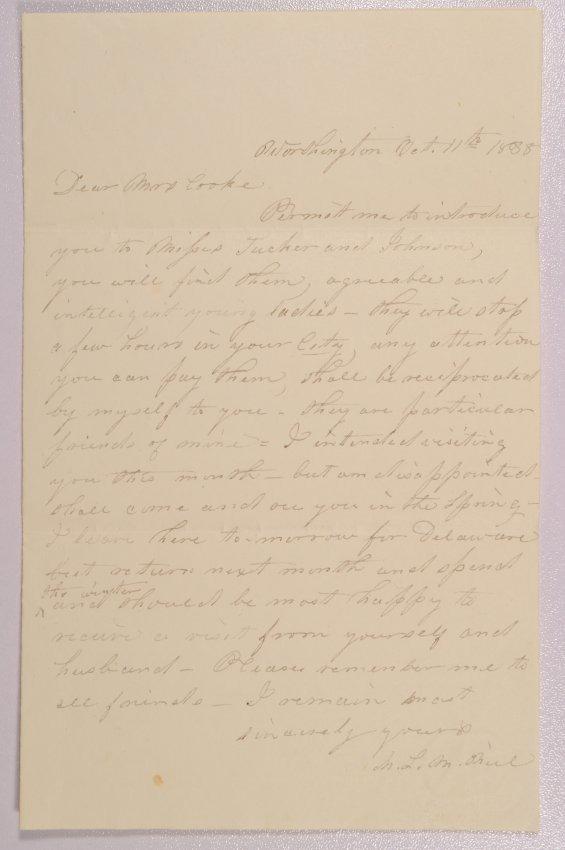 Worthington Oct. 11th 1838
Dear Mrs Cooke
Permit me to introduce
you to Misses Tucker and Johnson,
you will find them, agreeable and
intelligent young Ladies – they will stop
a few hours in your City, any attention
you can pay them, shall be reciprocated
by myself to you – they are particular
friends of mine = I intended visiting
you this month – but am disappointed –
shall come and see you in the Spring –
I leave here to-morrow for Delaware
but return next month and spend
the winter
and should be most happy to
receive a visit from yourself and
husband – Please remember me to
all friends – I remain most
sincerely yours
L. M.